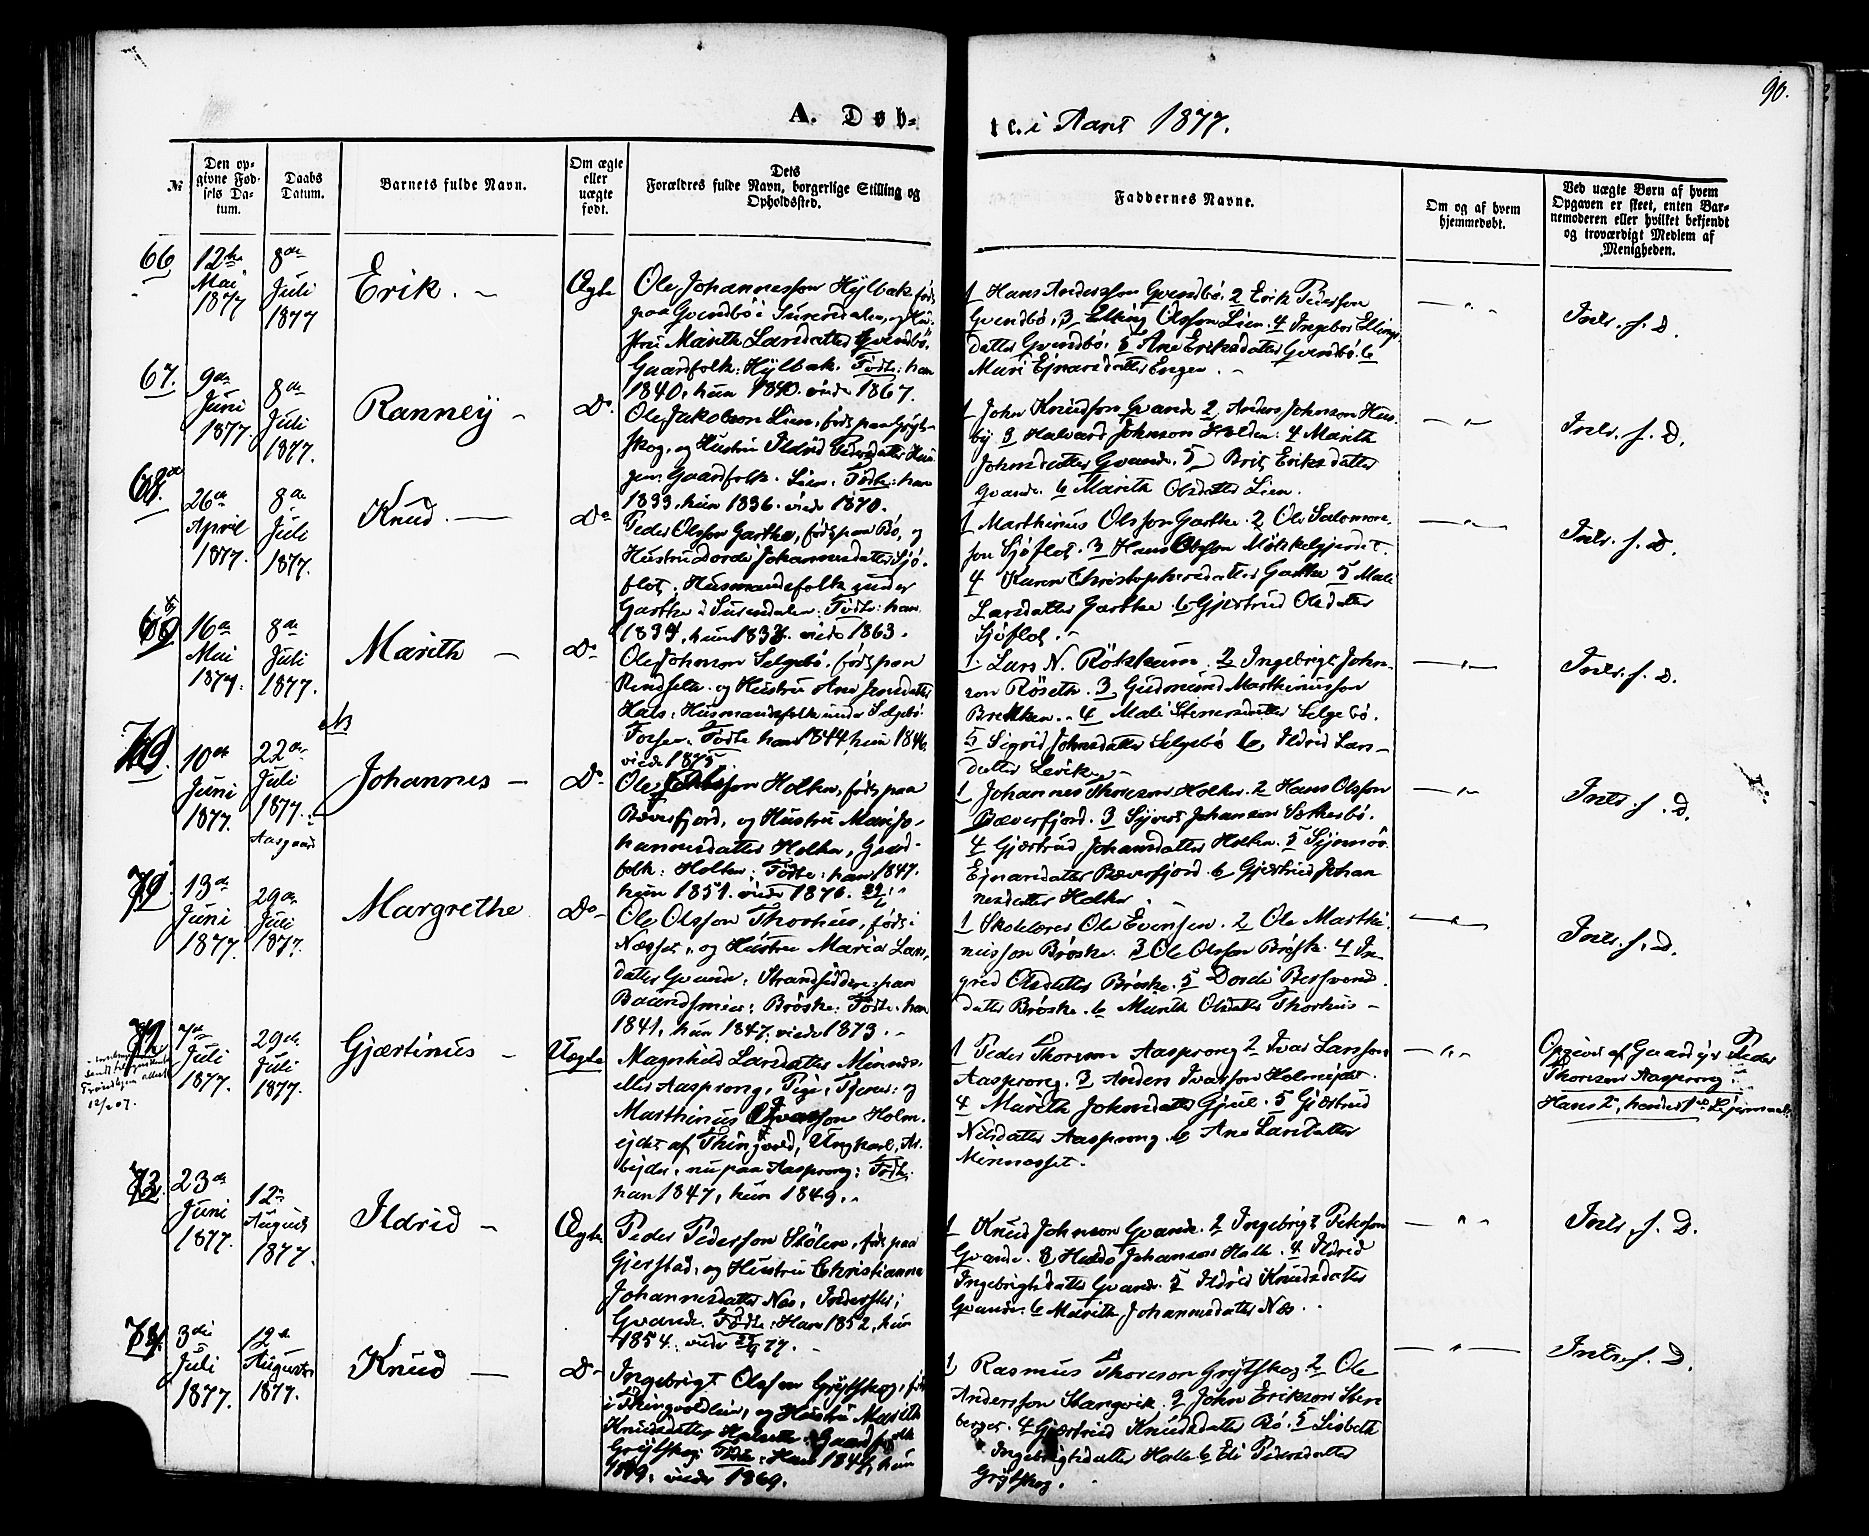 90.
A. Døb-
te i Aaret 1877.
№
Den op-
givne Fød-
sels Da-
tum.
Daabs
Datum.
Barnets fulde Navn.
Om ægte
eller
uægte
født.
Dets
Forældres fulde Navn, borgerlige Stilling og
Opholdssted.
Faddernes Navne.
Om og af hvem
hjemmedøbt.
Ved uægte Børn af hvem
Opgaven er skeet, enten Bar-
nemoderen eller hvilket bekjendt
og troværdigt Medlem af
Menigheden.
66
12te
Mai
1877
8de
Juli
1877
Erik.
Ægte
Ole Johannesson Hylbak, født
paa Gvendbø i Surendalen, og Hu-
stru Marith Larsdatter Gvendbø,
Gaardfolk: Hylbak. Fødte: han
1840, hun 1840. viede 1867.
1 Hans Andersson Gvendbø, 2 Erik Pedersson
Gvendbø, 3 Elling Olsson Lien. 4 Ingebor Ellings-
datter Gvendbø, 5 Ane Eriksdatter Gvendbø. 6
Mari Ejnarsdatter Engen.
Intr. f. D.
67.
9de
Juni
1877.
8de
Juli
1877.
Ranney
Do.
Ole Jakobson Lien, født paa Grøt-
skog, og Hustru Ildrid Pedersdatter
Gaardfolk. Lien. Fødte: han
1833, hun 1836. viede 1870.
1 John Knudson Gvande 2 Anders Johnson Hus-
by 3 Halvard Johnson Holden. 4 Marith
Johnsdatter Gvande. 5 Brit Eriksdatter
Gvande. 6 Marith Olsdatter Lien.
Intr. f. D.
68.
26de
April
1877.
8de
Juli
1877.
Knud.
Do
Peder Olsson Garthe, født paa Bø, og
Hustru Dordi Johannesdatter Sjø-
flot, Husmandsfolk under
Garthe i Surendalen. Fødte: han
viede 1863.
1 Marthinus Olsson Garthe. 2 Ole Salomon-
son Sjøflot. 3 Hans Olsson
4 Karen Christophersdatter Garthe 5 Mali
Larsdatter Garthe. 6 Gjertrud Olsdatter
Sjøflot.
Intr. f. D.
69
16de
Mai
1877.
8de
Juli
1877.
Marith
Do
Ole Johnson Selgebø, født paa
og Hustru Ane
Hals: Husmandsfolk under Selgebø
Fødte han 1844, hun 1846.
viede 1875
1. Lars N. 2 Ingebrigt John-
son Røseth. 3 Gudmund Marthinusson
4 Mali Stenersdatter Selgebø.
5 Sigrid Johnsdatter Selgebø 6, Ildrid Lars-
datter
Intr. f. D.
70.
10de
Juni
1877.
22de
Juli
1877.
Aasgaard
NB
Johannes
Do
Ole Holten, født paa
Bæverfjord, og Hustru Mari Jo-
hannesdatter Holten, Gaard-
folk: Holten: Fødte: han 1847.
hun 1851. viede 1876.
1 Johannes Thoreson Holten. 2 Hans Olsson
Bæverfjord. 3 Sivert Johanson Sæthersbø.
4 Gjertrud Johansdatter Holten. 5
Ejnarsdatter Bæverfjord. 6 Gjertrud Johan-
nesdatter Holten.
Intr. f. D.
71.
13de
Juni
1877.
29de
Juli
1877.
Margrethe
Do
Ole Olsson Thorhus, født i
Næsset, og Hustru Maria Lars-
datter Gvande, Strandsiddere: paa
Bøske: Fødte: han
1841, hun 1847. viede 1873.
1 Skolelærer Ole Evensen. 2 Ole Marthi-
nusson Brøske. 3 Ole Olsson Brøske. 4 In-
grid Olsdatter Brøske. 5 Dordi
datter Brøske. 6 Marith Olsdatter Thorhus
Intr. f. D.
72
7de
Juli
1877.
29de
Juli
1877.
Gjærtinus
Uægte
Magnhild Larsdatter Minnes-
eller Aasprong, Pige, Tjener: og
Marthinus Ivarson Holm-
ejdet af Thingvold, Ungkarl, Ar-
bejder, nu paa Aasprong: Fødte
han 1847, hun 1849.
1 Peder Thoreson Aasprong 2 Ivar Larsson
Aasprong. 3 Anders Ivarson Holmejdet.
4 Marith Johnsdatter Gjul. 5 Gjertrud
Nilsdatter Aasprong. 6 Ane Larsdatter
Minnesset.
Opgivet af Peder
Thoreson Aasprong:
Hans 2, hendes 1ste Lejermaal.
73.
23de
Juni
1877.
12te
August
1877.
Ildrid
Ægte
Peder Pederson Stølen, født paa
Gjerstad, og Hustru Christianna
Johannesdatter Nes, Inderster,
Gvande. Fødte: Han 1852, hun
1854. viede 77.
1 Knud Johnson Gvande. 2 Ingebrigt Peterson
Gvande. 3 Johanson Halle. 4 Ildrid
Ingebrigtsdatter Gvande. 5 Ildrid Knudsdatter
Gvande. 6 Marith Johannesdatter Nes.
Intr. f. D.
74.
3die
Juli
1877.
12te
August
1877.
Knud
Do
Ingebrigt Olsson Grøtskog, født
i Thingvoldlien, og Hustru Marith
Knudsdatter Gaardfolk
Grøtskog: Fødte: Han 1844, hun
viede 1869.
1 Rasmus Thoreson Grøtskog 2 Ole
Andersson Stangvik. 3 John Erikson Sten-
berget. 4 Gjertrud Knudsdatter Bø. 5 Lisbeth
Ingebrigtsdatter Halle 6 Eli Pedersdatter
Grøtskog.
Intr. f. D.